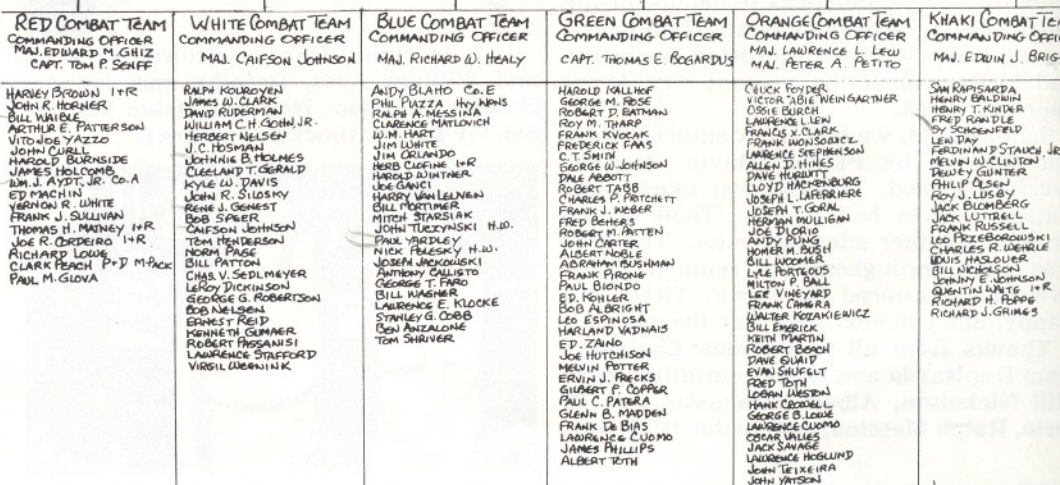 RED COMBAT TEAM
COMMANDING OFFICER
MAJ. EDWARD M. GHIZ
CAPT. TOM P. SENFF
HARVEY BROWN I+R
JOHN R. HORNER
BILL WAIBLE
ARTHUR E. PATTERSON
VITO JOE YAZZO
JOHN CURLL
HAROLD BURNSIDE
JAMES HOLCOMB
WM. J. AYDT, JR. Co. A
ED MACHLIN
VERNON R. WHITE
FRANK J. SULLIVAN
THOMAS H. MATNEY I+R
JOE R. CORDEIRO I+R
RICHARD LOWE
CLARK PEACH P+D M.Pack
PAUL M. GLOVA
WHITE COMBAT TEAM
COMMANDING OFFICER
MAJ. CAIFSON JOHNSON
RALPH KOUROYEN
JAMES W. CLARK
DAVID RUDERMAN
WILLIAM C.H. GOHN, JR.
HERBERT NELSEN
J.C. HOSMAN
JOHNNIE B. HOLMES
CLEELAND T. GERALD
KYLE W. DAVIS
JOHN R. SILOSKY
RENE J. GENEST
BOB SPEER
CAIFSON JOHNSON
TOM HENDERSON
NORM PAGE
BILL PATTON
CHAS. V. SEDLMEYER
LEROY DICKINSON
GEORGE G. ROBERTSON
BOB NELSEN
ERNEST REID
KENNETH SUMAER
ROBERT PASSANISI
LAWRENCE STAFFORD
VIRGIL WEENINK
BLUE COMBAT TEAM
COMMANDING OFFICER
MAJ. RICHARD W. HEALY
ANDY BLAHO Co. E
PHIL PIAZZA HVY WPNS
RALPH A. MESSINA
CLARENCE MATLOVICH
W.M. HART
JIM WHITE
JIM ORLANDO
HERB CLOFINE I+R
HAROLD WINTNER
JOE GANCI
HARRY VAN LEUVEN
BILL PORTIMER
MITCH STARSIAK
JOHN TUCZYNSKI H.W.
PAUL YARDLEY
NICK PELESKY H.W.
JOSEPH JACKOWSKI
ANTHONY CALLISTO
GEORGE T. FARO
BILL WAGNER
LAWRENCE E. KLOCKE
STANLEY G. COBB
BEN ANZALONE
TOM SHRIVER
GREEN COMBAT TEAM
COMMANDING OFFICER
CAPT. THOMAS E. BOGARDUS
HAROLD KALLHOF
GEORGE M. ROSE
ROBERT D. EATMAN
ROY M. THARP
FRANK KVOCAK
FREDERICK FAAS
C.T. SMITH
GEORGE W. JOHNSON
DALE ABBOTT
ROBERT TABB
CHARLES P. PRITCHETT
FRANK J. WEBER
FRED BEHERS
ROBERT M. PATTEN
JOHN CARTER
ALBERT NOBLE
ABRAHAM BUSHMAN
FRANK PIRONG
PAUL BIONDO
ED. KOHLER
BOB ALBRIGHT
LEO ESPINOSA
HARLAND VADNAIS
ED. ZAINO
JOE HUTCHISON
MELVIN POTTER
ERVIN J. FRECKS
GILBERT F. COPPER
PAUL C. PATERA
GLENN B. MADDEN
FRANK DE BIAS
LAWRENCE CUOMO
JAMES PHILLIPS
ALBERT TOTH
ORANGE COMBAT TEAM
COMMANDING OFFICER
MAJ. LAWRENCE L. LEW
MAJ. PETER A. PETITO
CHUCK FOYDER
VICTOR "ABIE" WEINGARTNER
OSSIE BURCH
LAWRENCE L. LEW
FRANCIS X. CLARK
FRANK WONSOWICZ
LAWRENCE STEPHENSON
ALLEN D. HINES
DAVE HURWITT
LLOYD HACKENBURG
JOSEPH L. LAFERRIERE
JOSEPH T. GORAL
HERMAN MULLIGAN
JOE DIORIO
ANDY PUNG
HOMER H. BUSH
BILL WOOMER
LYLE PORTEOUS
MILTON P. BALL
LEE VINEYARD
FRANK CAMERA
WALTER KOZAKIEWICZ
BILL EMERICK
KEITH MARTIN
ROBERT BEACH
DAVE QUAID
EVAN SHUFELT
FRED TOTH
LOGAN WESTON
HANK CROWELL
GEORGE B. LOWE
LAWRENCE CUOMO
OSCAR VALLES
JACK SAVAGE
LAWRENCE HOGLUND
JOHN TEIXEIRA
JOHN YATSON
KHAKI COMBAT TEA
COMMANDING OFFICE
MAJ. EDWIN J. BRIG
SAM RAPISARDA
HENRY BALDWIN
HENRY T. KINDER
FRED RANDLE
SY SCHOENFELD
LEW DAY
FERDINAND STAUCH, JR.
MELVIN W. CLINTON
DEWEY GUNTER
PHILIP OLSEN
ROY J. LUSBY
JACK BLOMBERG
JACK LUTTRELL
FRANK RUSSELL
LEO PRZEBOROWSKI
CHARLES R. WEHRLE
LOUIS HASLOUER
BILL NICHOLSON
JOHNNY E. JOHNSON
QUENTIN WAITE I+R
RICHARD H. POPPE
RICHARD J. GRIMES